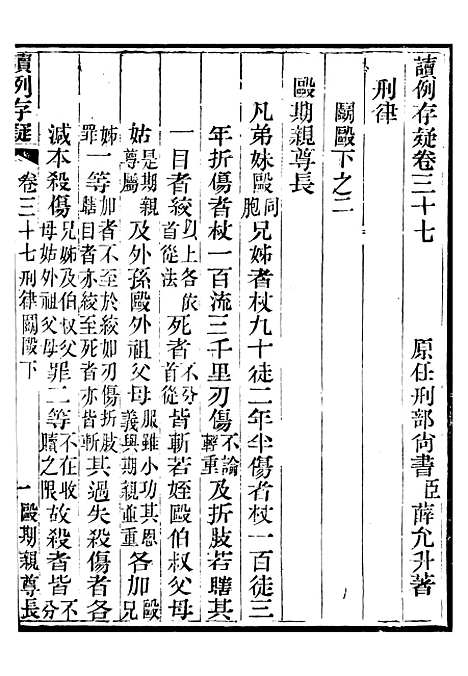 讀例存疑卷三十七　原任刑部尚書臣薛允升著
刑律
鬭毆下之二
毆期親尊長
凡弟妹毆同胞兄姊者杖九十徒二年半傷者杖一百徒三
年折傷者杖一百流三千里刃傷不論輕重及折肢若瞎其
一目者絞以上各依首從法死者不分首從皆斬若姪毆伯叔父母
姑是期親尊屬及外孫毆外祖父母服雖小功其恩義與期親並重各加毆兄
姊罪一等加者不至於絞如刃傷折肢瞎目者亦絞至死者亦皆斬其過失殺傷者各
減本殺傷兄姊及伯叔父母姑外祖父母罪二等不在收贖之限故殺者皆不分
讀例存疑　卷三十七刑律鬭毆下　一　毆期親尊長